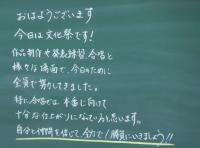 おはようございます
今日は文化祭です!
作品制作や発表練習、合唱と
様々な場面で、今日のために
全員で努力してきました。
特に合唱では、本番に向けて
十分な仕上がりになっていると思います。
自分と仲間を信じて、全力で!勝負にいきましょう!!